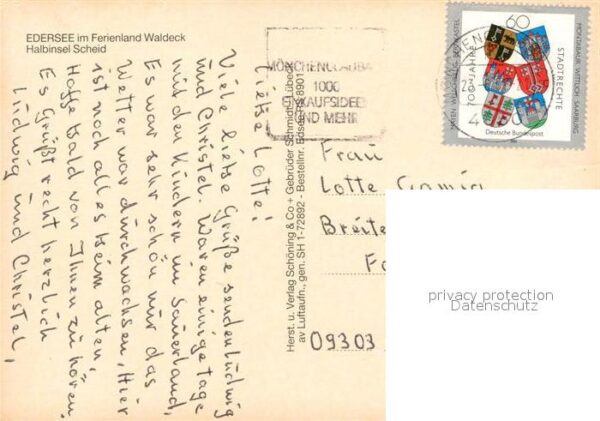 EDERSEE im Ferienland Waldeck
Halbinsel Scheid
Liebe Lotte!
Viele liebe Grüße senden Ludwig
und Christel. Waren einige Tage
mit den Kindern im Sauerland,
Es war sehr schön nur das
Wetter war durchwachsen, Hier
ist noch alles beim alten,
Hoffe bald von Ihnen zu hören,
Es Grüßt recht herzlich
Ludwig und Christel,
Herst. u. Verlag Schöning & Co + Gebrüder Schmidt, Lübeck
av Luftaufn., gen. SH 1-72892 - Bestellnr. Edsee
MÖNCHENGLADBA
1000
EINKAUFSIDEEN
UND MEHR
60
700 JAHRE
STADTRECHTE
MAYEN WELSCHBILLIG BERNKASTEL
MONTABAUR WITTLICH SAARBURG
Deutsche Bundespost
Frau
Lotte
Breite
09303
privacy protection
Datenschutz